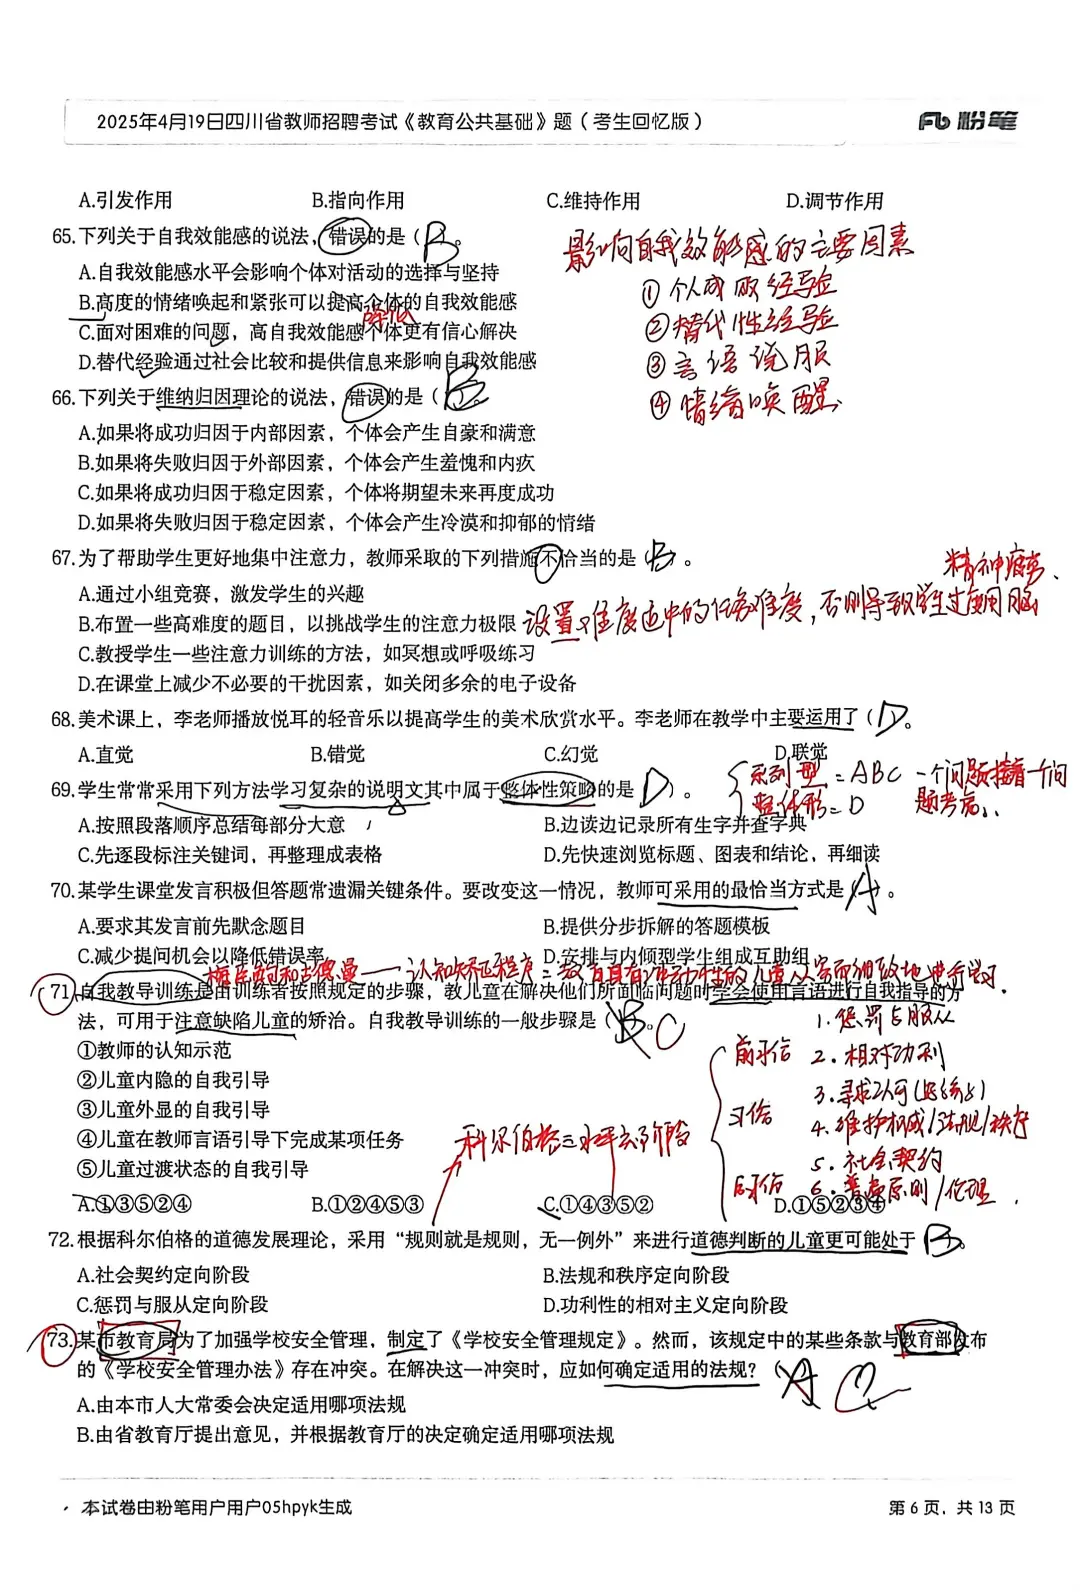 2025年4月19日四川省教师招聘考试《教育公共基础》题（考生回忆版）
粉笔
A.引发作用 B.指向作用 C.维持作用 D.调节作用
65.下列关于自我效能感的说法，错误的是（B）。
影响自我效能感的主要因素
A.自我效能感水平会影响个体对活动的选择与坚持
①个人成败经验
B.高度的情绪唤起和紧张可以提高个体的自我效能感
降低
②替代性经验
C.面对困难的问题，高自我效能感个体更有信心解决
③言语说服
D.替代经验通过社会比较和提供信息来影响自我效能感
④情绪唤醒
66.下列关于维纳归因理论的说法，错误的是（B）。
A.如果将成功归因于内部因素，个体会产生自豪和满意
B.如果将失败归因于外部因素，个体会产生羞愧和内疚
C.如果将成功归因于稳定因素，个体将期望未来再度成功
D.如果将失败归因于稳定因素，个体会产生冷漠和抑郁的情绪
67.为了帮助学生更好地集中注意力，教师采取的下列措施不恰当的是（B）。
A.通过小组竞赛，激发学生的兴趣
B.布置一些高难度的题目，以挑战学生的注意力极限
设置难度适中的任务难度，否则导致学生过度用脑
精神疲劳、
C.教授学生一些注意力训练的方法，如冥想或呼吸练习
D.在课堂上减少不必要的干扰因素，如关闭多余的电子设备
68.美术课上，李老师播放悦耳的轻音乐以提高学生的美术欣赏水平。李老师在教学中主要运用了（D）。
A.直觉 B.错觉 C.幻觉 D.联觉
系列型=ABC 一个问题接着一个问题考虑
69.学生常常采用下列方法学习复杂的说明文其中属于整体性策略的是（D）。
整体形=D
A.按照段落顺序总结每部分大意 B.边读边记录所有生字并查字典
C.先逐段标注关键词，再整理成表格 D.先快速浏览标题、图表和结论，再细读
70.某学生课堂发言积极但答题常遗漏关键条件。要改变这一情况，教师可采用的最恰当方式是（A）。
A.要求其发言前先默念题目 B.提供分步拆解的答题模板
C.减少提问机会以降低错误率 D.安排与内倾型学生组成互助组
梅钦鲍姆和古德曼——认知矫正程序=教育具有冲动性的儿童从容而细致地进行学习.
71.自我教导训练是由训练者按照规定的步骤，教儿童在解决他们所面临问题时学会使用言语进行自我指导的方
法，可用于注意缺陷儿童的矫治。自我教导训练的一般步骤是（B）。 C
1.惩罚与服从
①教师的认知示范
前习俗 2.相对功利
②儿童内隐的自我引导
3.寻求认可(好孩子)
③儿童外显的自我引导
习俗 4.维护权威/法规/秩序
④儿童在教师言语引导下完成某项任务
科尔伯格三水平六阶段
5.社会契约
⑤儿童过渡状态的自我引导
后习俗 6.普遍原则/伦理
A.①③⑤②④ B.①②④⑤③ C.①④③⑤② D.①⑤②③④
72.根据科尔伯格的道德发展理论，采用“规则就是规则，无一例外”来进行道德判断的儿童更可能处于（B）。
A.社会契约定向阶段 B.法规和秩序定向阶段
C.惩罚与服从定向阶段 D.功利性的相对主义定向阶段
73.某市教育局为了加强学校安全管理，制定了《学校安全管理规定》。然而，该规定中的某些条款与教育部发布
的《学校安全管理办法》存在冲突。在解决这一冲突时，应如何确定适用的法规？（A C
A.由本市人大常委会决定适用哪项法规
B.由省教育厅提出意见，并根据教育厅的决定确定适用哪项法规
本试卷由粉笔用户用户05hpyk生成
第 6 页，共 13 页